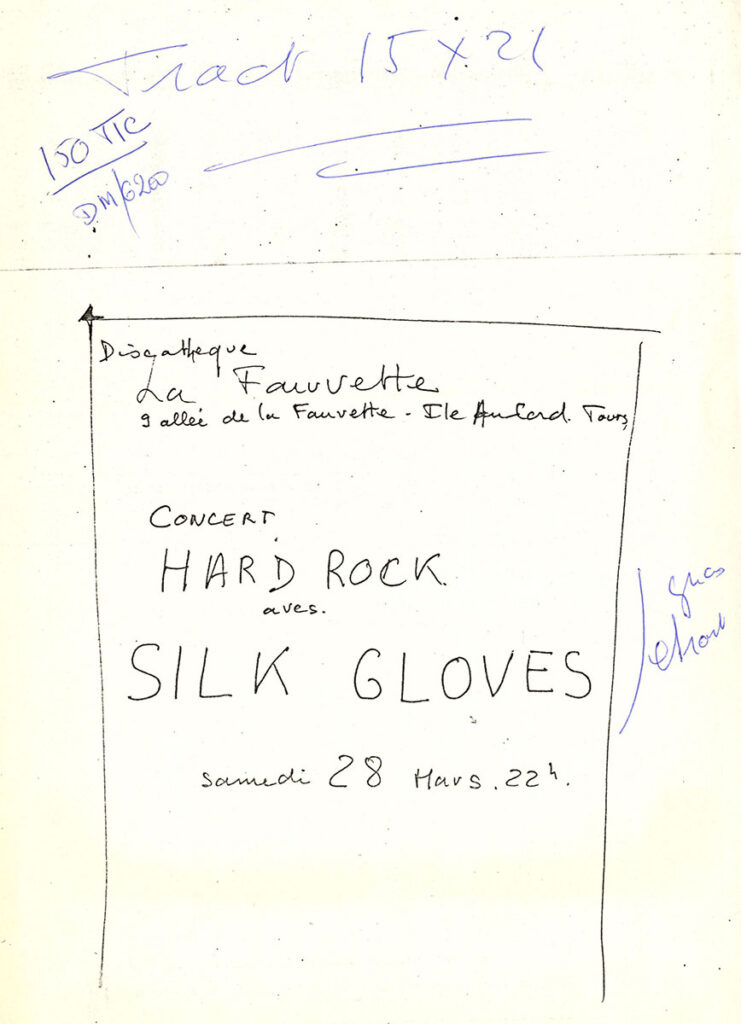 Tract 15 x 21
150 TTC
Discotheque
La Fauvette
9 allée de la Fauvette - Ile Aucard. Tours
CONCERT
HARD ROCK
avec.
SILK GLOVES
gras
samedi 28 Mars. 22h.